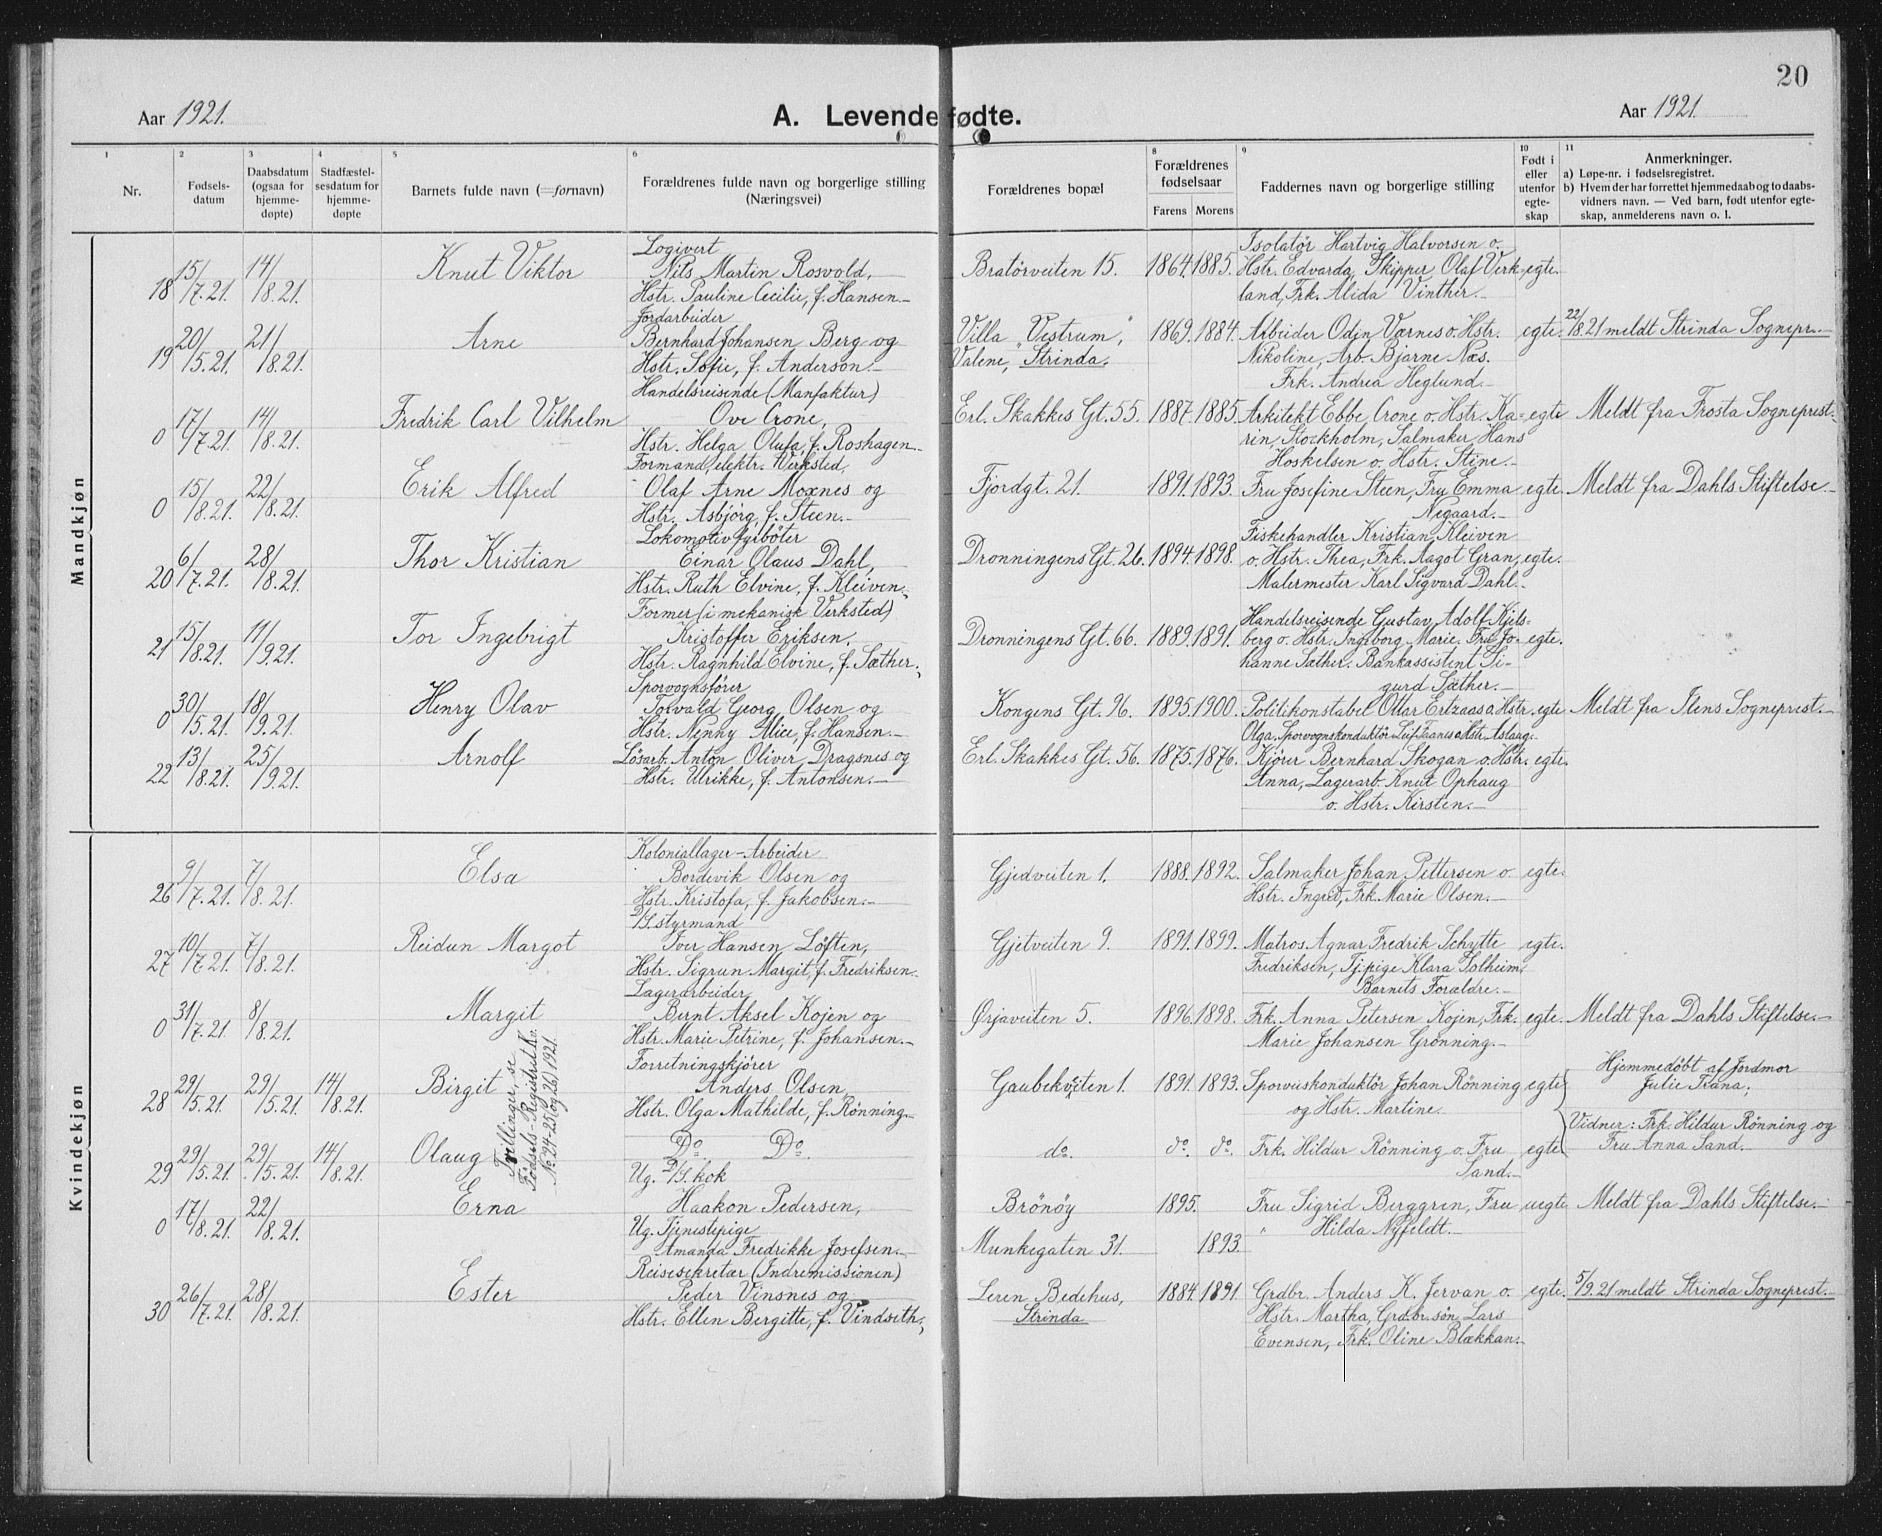 20
Aar 1921.
A. Levendefødte.
Aar 1921.
1 2 3 4 5 6 7 8 9 10 11
Nr.
Fødsels-
datum
Daabsdatum
(ogsaa for
hjemme-
døpte)
Stadfæstel-
sesdatum for
hjemme-
døpte
Barnets fulde navn (=fornavn)
Forældrenes fulde navn og borgerlige stilling
(Næringsvei)
Forældrenes bopæl
Forældrenes
fødselsaar
Farens Morens
Faddernes navn og borgerlige stilling
Født i
eller
utenfor
egte-
skap
Anmerkninger.
a) Løpe-nr. i fødselsregistret.
b) Hvem der har forrettet hjemmedaab og to daabs-
vidners navn. — Ved barn, født utenfor egte-
skap, anmelderens navn o. l.
Mandkjøn
18 15/7.21. 14/8.21. Knut Viktor
Logivert
Nils Martin Rosvold,
Hstr. Pauline Cecilie, f. Hansen.–
Bratörveiten 15. 1864. 1885.
Isolatør Hartvig Halvorsen o.
Hstr. Edvarda, Skipper Olaf Verk-
land, Frk. Alida Vinther.–
egte.
19 20/5.21. 21/8.21. Arne
Jordarbeider
Bernhard Johansen Berg og
Hstr. Sofie, f. Anderson.–
Villa "Vestrum",
Valene, Strinda.
1869. 1884.
Arbeider Odin Værnes o. Hstr.
Nikoline, Arb. Bjarne Næs.
Frk. Andrea Heglund.–
egte. 22/8.21 meldt Strinda Sognepr.–
0 17/7.21. 14/8.21. Fredrik Carl Vilhelm
Handelsreisende (Manfaktur)
Ove Crone,
Hstr. Helga Olufa, f. Roshagen.–
Erl. Skakkes Gt. 55. 1887. 1885.
Arkitekt Ebbe Crone o. Hstr. Ka-
rin, Stockholm, Salmaker Hans
Hoskelsen o. Hstr. Stine.–
egte Meldt fra Frosta Sogneprest.
0 15/8.21. 22/8.21. Erik Alfred
Formand, elektr. Verksted,
Olaf Arne Moxnes og
Hstr. Asbjörg, f. Steen.–
Fjordgt. 21. 1891. 1893.
Fru Josefine Steen, Fru Emma
Negaard.–
egte. Meldt fra Dahls Stiftelse.–
20 6/7.21. 28/8.21. Thor Kristian
Lokomotivfyrböter
Einar Olaus Dahl,
Hstr. Ruth Elvine, f. Kleiven.
Dronningens Gt. 26. 1894. 1898.
Fiskehandler Kristian Kleiven
o. Hstr. Thea, Frk. Aagot Gran,
Malermester Karl Sigvard Dahl.–
egte.
21 15/8.21. 11/9.21. Tor Ingebrigt
Former (i mekanisk Verksted)
Kristoffer Eriksen,
Hstr. Ragnhild Elvine, f. Sæther.
Dronningens Gt. 66. 1889. 1891.
Handelsreisende Gustav Adolf Kjels-
berg o. Hstr. Ingeborg Marie, Fru Jo-
hanne Sæther. Bankassistent Si-
gurd Sæther.–
egte.
0 30/5.21. 18/9.21. Henry Olav
Sporvognsfører
Torvald Georg Olsen og
Hstr. Nenny Alice, f. Hansen.–
Kongens Gt. 96. 1895. 1900.
Politikonstabel Ottar Ertzaas o. Hstr.
Olga. Sporvognskonduktör Leif Franes o. Hstr. Aslaug.
egte Meldt fra Ilens Sogneprest.–
22 13/8.21. 25/9.21. Arnolf
Lösarb. Anton Oliver Dragsnes og
Hstr. Ulrikke, f. Antonsen.–
Erl. Skakkes Gt. 56. 1875. 1876.
Kjörer Bernhard Skogan o. Hstr.
Anna, Lagerarb. Knut Ophaug
o. Hstr. Kirsten.–
egte.
Kvindekjøn
26 9/7.21. 7/8.21. Elsa
Koloniallager-Arbeider
Bordevik Olsen og
Hstr. Kristofa, f. Jakobsen.–
Gjedveiten 1. 1888. 1892.
Salmaker Johan Pettersen o
Hstr. Ingred, Frk. Marie Olsen.–
egte.
27 10/7.21. 7/8.21. Reidun Margot
D/S. styrmand
Iver Hansen Löften,
Hstr. Sigrun Margit, f. Fredriksen.
Gjetveiten 9. 1891. 1899.
Matros. Agnar Fredrik Schytte
Fredriksen, Tj.pige Klara Solheim,
Barnets Forældre.–
egte.
0 31/7.21. 8/8.21. Margit
Lagerarbeider
Bernt Aksel Kojen og
Hstr. Marie Petrine, f. Johansen.–
Ørjaveiten 5. 1896. 1898.
Frk. Anna Petersen Kojen, Frk.
Marie Johansen Grönning.–
egte. Meldt fra Dahls Stiftelse.–
28 29/5.21. 29/5.21. 14/8.21. Birgit
Tvillinger, se
Fødsels-Registret Kv.
No 24-25 (og 26) 1921.
Forretningskjörer
Anders Olsen,
Hstr. Olga Mathilde, f. Rönning.–
Gaubekveiten 1. 1891. 1893.
Sporveiskonduktör Johan Rönning
og Hstr. Martine.
egte
Hjemmedöbt af Jordmor
Julie Tiana;
29 29/5.21. 29/5.21. 14/8.21. Olaug
Do Do.
do. do. do.
Frk. Hildur Rönning o. Fru
Sand.–
egte
Vidner: Frk. Hildur Rönning og
Fru Anna Sand.–
0 17/8.21. 22/8.21. Erna
Ug. D/S. kok
Haakon Pedersen,
Ug. Tjenestepige
Amanda Fredrikke Josefsen.–
Brönöy 1895.
Munkegaten 31. 1893.
Fru Sigrid Berggren, Fru
Hilda Nyfeldt.–
uegte Meldt fra Dahls Stiftelse.–
30 26/7.21. 28/8.21. Ester
Reisesekretær (Indremissionen)
Peder Vinsnes og
Hstr. Ellen Bergitte, f. Vindseth.
Leren Bedehus,
Strinda
1884 1891.
Grdbr. Anders K. Jervan o.
Hstr. Martha, Grdbr.søn Lars
Evensen, Frk. Oline Blækkan.–
egte. 5/9.21 meldt Strinda Sogneprest.